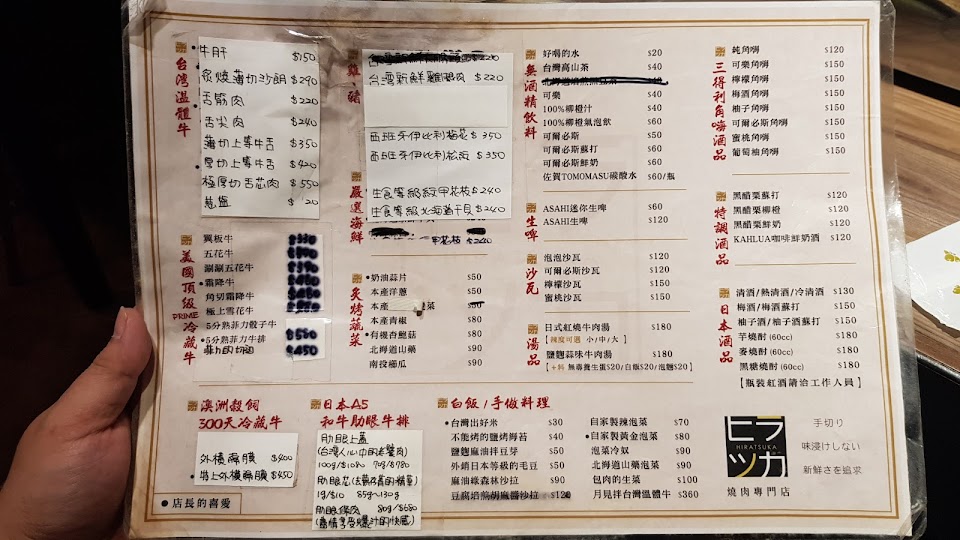 台灣溫體牛
牛肝 $150
炙燒薄切沙朗 $290
舌筋肉 $220
舌尖肉 $240
薄切上等牛舌 $350
厚切上等牛舌 $420
極厚切舌芯肉 $550
蔥鹽 $20
美國頂級PRIME冷藏牛
翼板牛
五花牛
涮涮五花牛
霜降牛
角切霜降牛
極上雪花牛
5分熟菲力骰子牛 $530
5分熟菲力牛排
菲力肉切角 $450
雞、豬
台灣新鮮雞腿肉 $220
西班牙伊比利梅花 $350
西班牙伊比利松阪 $350
嚴選海鮮
生食等級紋甲花枝 $240
生食等級北海道干貝 $240
甲花枝 $240
炙烤蔬菜
奶油蒜片 $50
本產洋蔥 $50
本產 菜 $50
本產青椒 $60
有機杏鮑菇 $80
北海道山藥 $90
南投櫛瓜 $90
無酒精飲料
好喝的水 $20
台灣高山茶 $40
可樂 $40
100%柳橙汁 $40
100%柳橙氣泡飲 $60
可爾必斯 $50
可爾必斯蘇打 $60
可爾必斯鮮奶 $60
佐賀TOMOMASU碳酸水 $60/瓶
生啤
ASAHI迷你生啤 $60
ASAHI生啤 $120
沙瓦
泡泡沙瓦 $120
可爾必斯沙瓦 $120
檸檬沙瓦 $150
蜜桃沙瓦 $150
湯品
日式紅燒牛肉湯 $180
【辣度可選 小/中/大】
鹽麴蒜味牛肉湯 $180
【+料 無毒養生蛋$20/白飯$20/泡麵$20】
三得利角嗨酒品
純角嗨 $120
可樂角嗨 $150
檸檬角嗨 $150
梅酒角嗨 $150
柚子角嗨 $150
可爾必斯角嗨 $150
蜜桃角嗨 $150
葡萄柚角嗨 $150
特調酒品
黑醋栗蘇打 $120
黑醋栗柳橙 $120
黑醋栗鮮奶 $120
KAHLUA咖啡鮮奶酒 $120
日本酒品
清酒/熱清酒/冷清酒 $130
梅酒/梅酒蘇打 $150
柚子酒/柚子酒蘇打 $150
芋燒酎(60cc) $180
麥燒酎(60cc) $180
黑糖燒酎(60cc) $180
【瓶裝紅酒請洽工作人員】
澳洲穀飼
300天冷藏牛
外橫膈膜 $400
特上外橫膈膜 $450
店長的喜愛
日本A5
和牛肋眼牛排
肋眼上蓋
100g/$1080 70g/$780
肋眼芯
1g/$10 85g~130g
80g/$680
白飯/手做料理
台灣出好米 $30
不能烤的鹽烤海苔 $40
鹽麴麻油拌豆芽 $50
外銷日本等級的毛豆 $50
麻油綠森林沙拉 $90
豆腐焙煎胡麻醬沙拉 $120
自家製辣泡菜 $70
自家製黃金泡菜 $80
泡菜冷奴 $90
北海道山藥泡菜 $90
包肉的生菜 $100
月見拌台灣溫體牛 $360
ヒラツカ
HIRATSUKA
燒肉專門店
手切り
味浸けしない
新鮮さを追求